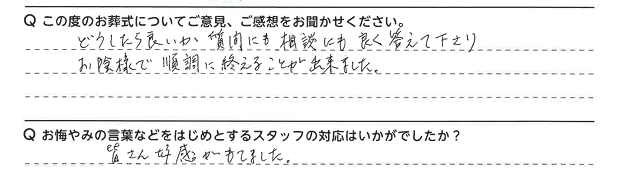 Q この度のお葬式についてご意見、ご感想をお聞かせください。
どうしたら良いか 質問にも 相談にも 良く答えて下さり
お陰様で 順調に終えることが出来ました。
Q お悔やみの言葉などをはじめとするスタッフの対応はいかがでしたか？
皆さん好感がもてました。